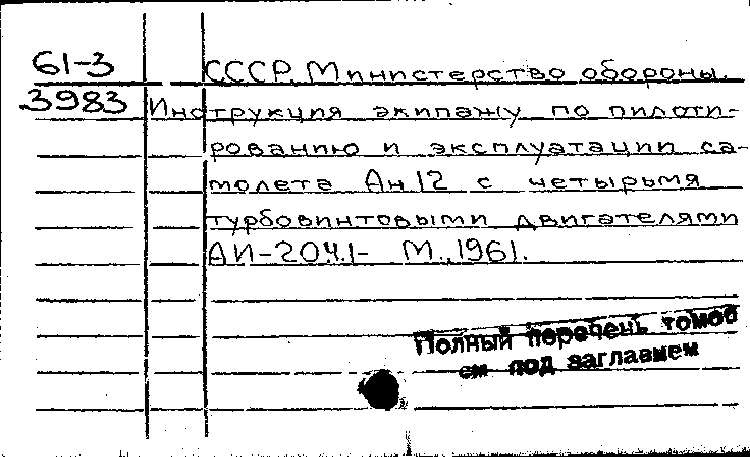 61-3 СССР. Министерство обороны.
3983 Инструкция экипажу по пилоти-
рованию и эксплуатации са-
молета Ан12 с четырьмя
турбовинтовыми двигателями
АИ-20. Ч.1- М., 1961.
Полный перечень томов
см под заглавием